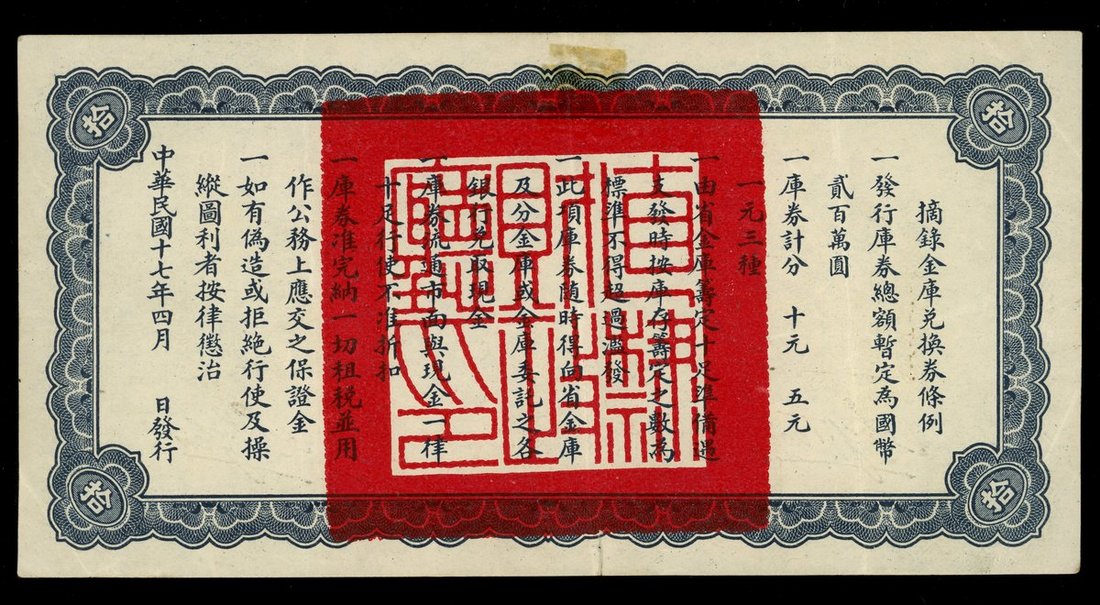 拾
拾
摘錄金庫兌換券條例
一發行庫券總額暫定為國幣
貳百萬圓
一庫券計分 十元 五元
一元三種
一由省金庫籌定十足準備遇
支發時按庫存籌定之數為
標準不得超過濫發
一此項庫券隨時得向省金庫
及分金庫或金庫委託之各
銀行兌取現金
一庫券流通市面與現金一律
十足行使不准折扣
一庫券准完納一切租稅並用
作公務上應交之保證金
一如有偽造或拒絕行使及操
縱圖利者按律懲治
中華民國十七年四月 日發行
拾
拾